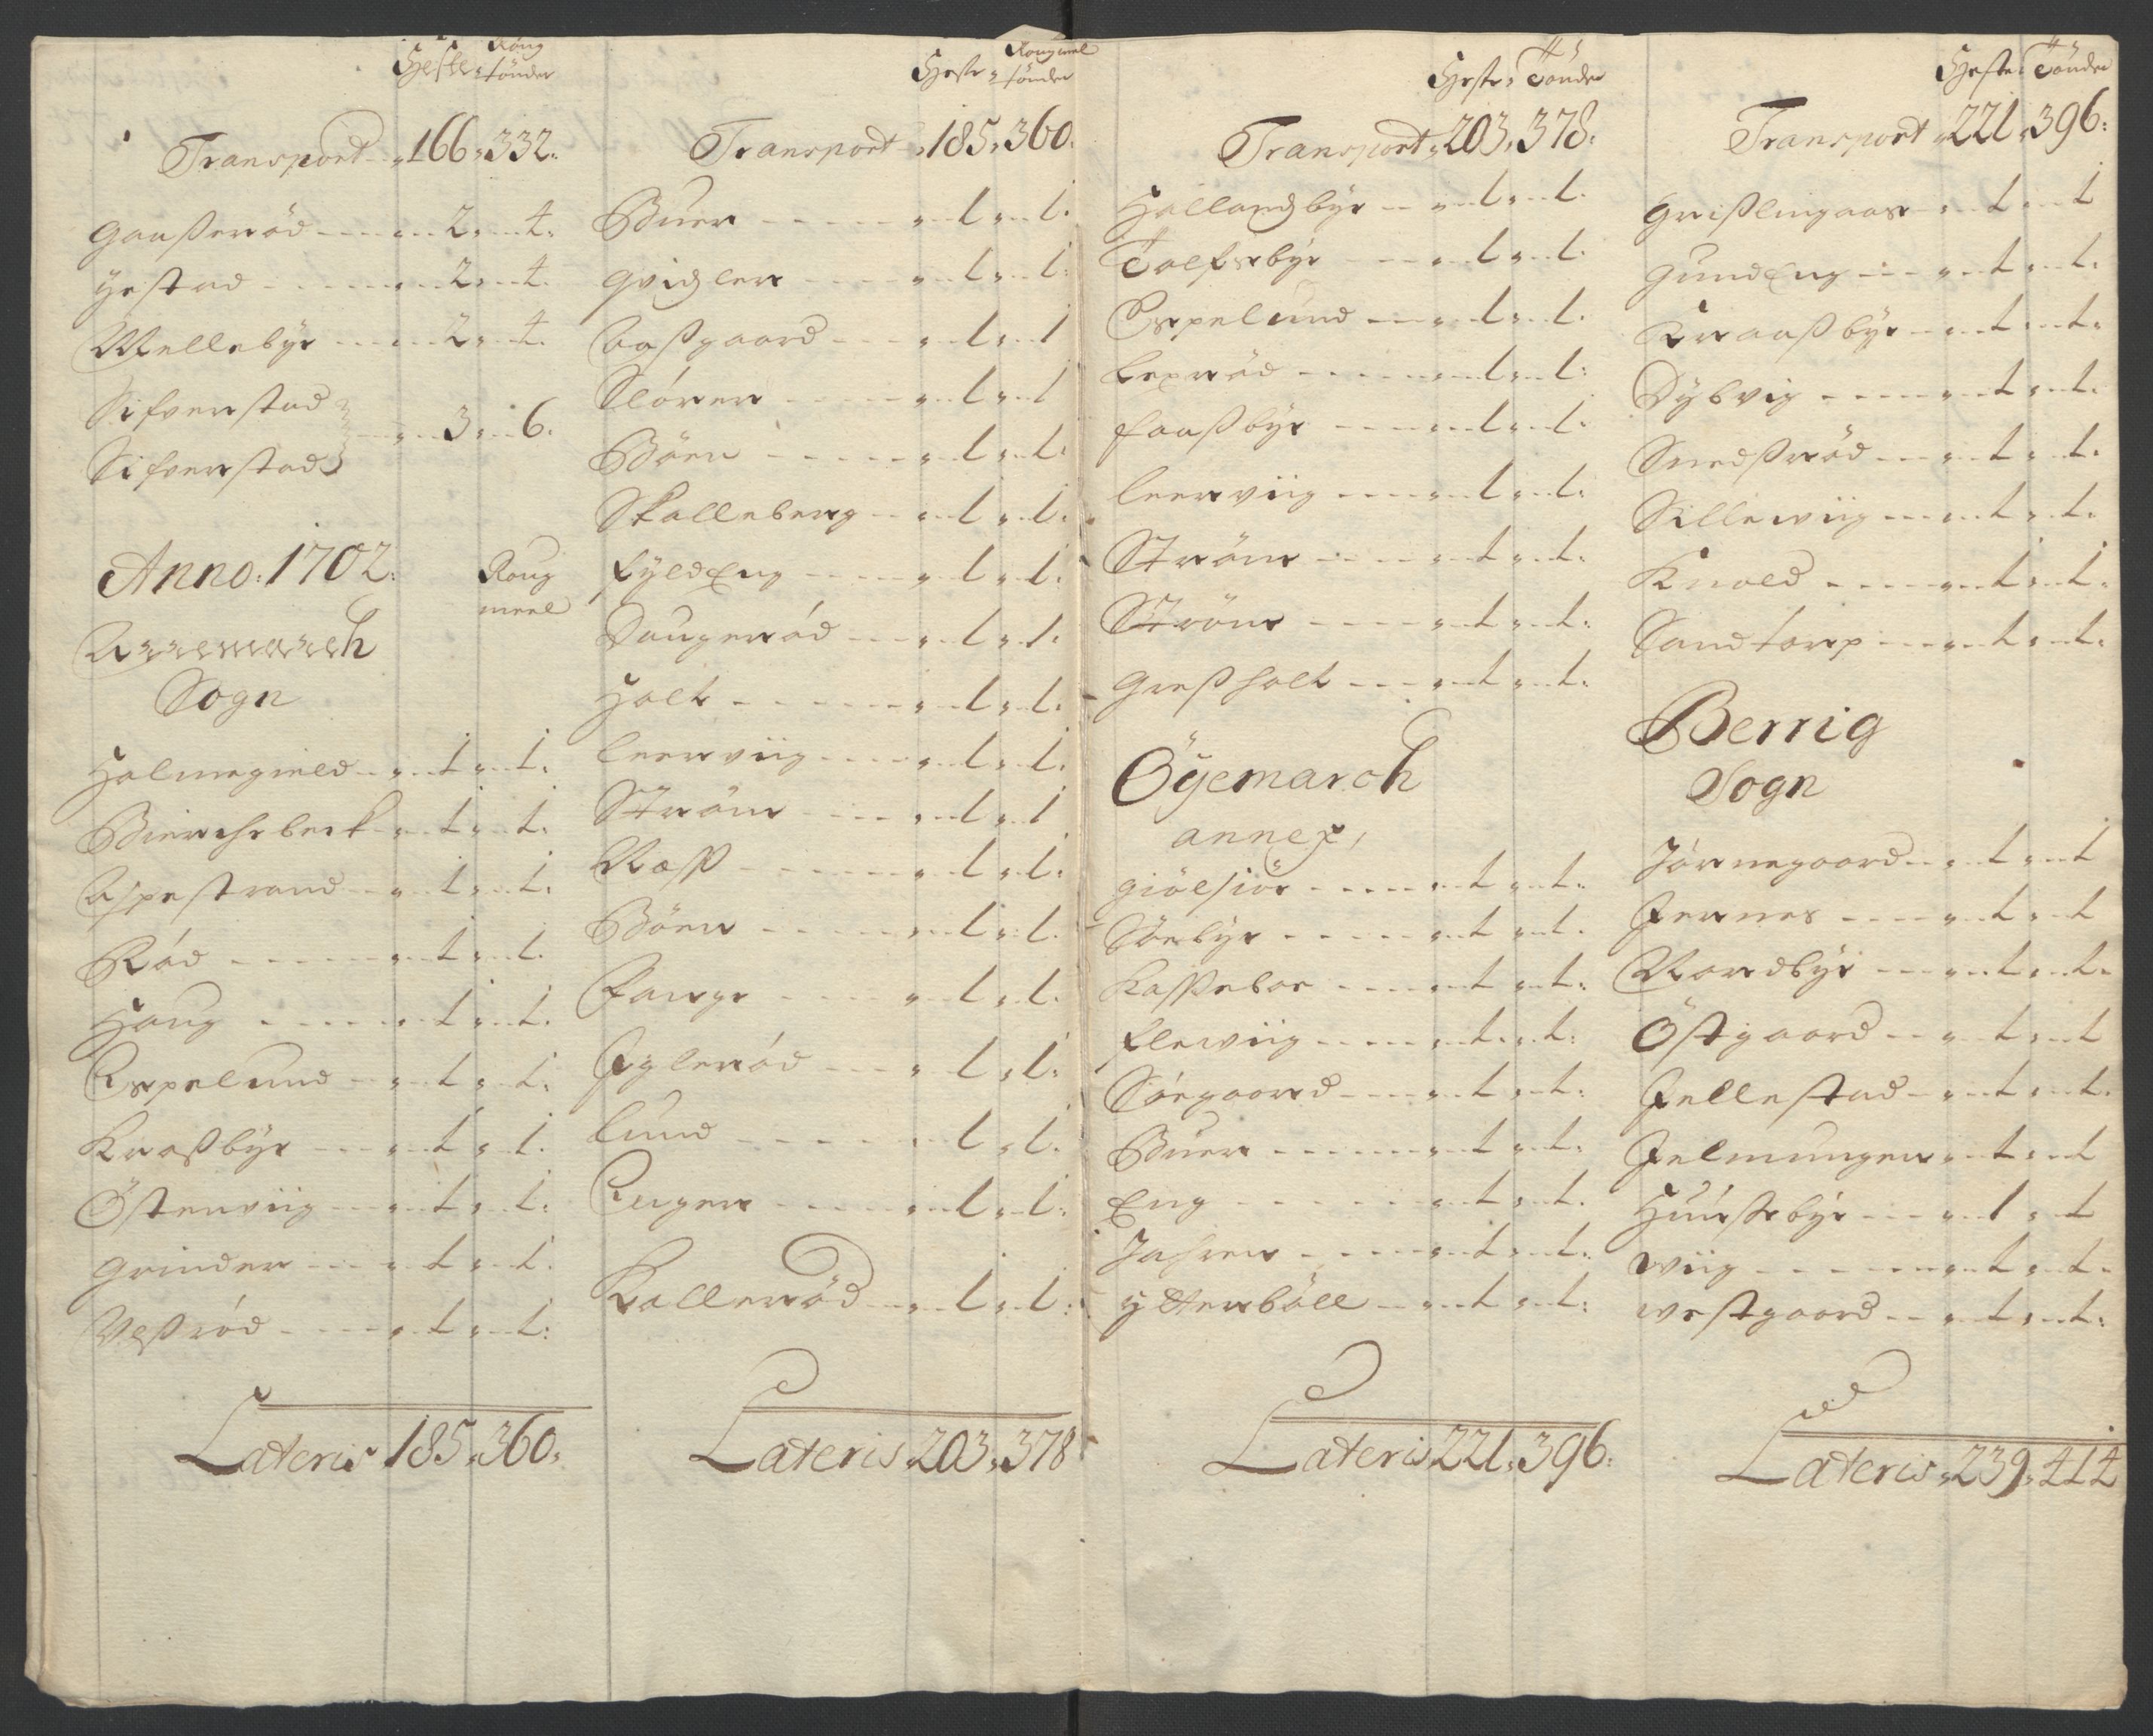 Heste Roug
tønder
Transport 166 332.
Gaasserød 2 4.
Hestad 2 4.
Mellebye 2 4.
Sifverstad
3 6.
Sifverstad
Anno: 1702. Roug
meel
Arremarch
Sogn
Holmegield 1 1.
Bierchebeck 1 1.
Aspestrand 1 1.
Rød 1 1.
Houg 1 1.
Espelund 1 1.
Krossbye 1 1.
Østenviig 1 1.
Grinder 1 1.
Vessrød 1 1.
Lateris 185 360.
Heste Rougmeel
tønder
Transport 185 360.
Buer 1 1.
Qvidsler 1 1.
Aassgaard 1 1
Sløren 1 1
Böen 1 1.
Skalleberg 1 1.
Fyldeng 1 1.
Daugerød 1 1.
Holt 1 1.
Leerviig 1 1.
Strøm 1 1
Næss 1 1.
Böen 1 1.
Fange 1 1.
Iglerød 1 1.
Lund 1 1.
Enger 1 1.
Kallerød 1 1.
Lateris 203 378
Heste Tönder
Transport 203 378.
Hallandsbye 1 1.
Tolfsbye 1 1.
Espelund 1 1.
Lexröd 1 1.
Faassbye 1 1.
Leerviig 1 1.
Ström 1 1.
Ström 1 1.
Gressholt 1 1.
Öÿemarch
annex,
Giölsiöe 1 1.
Söebye 1 1.
Kasseboe 1 1.
Fleviig 1 1.
Söegaard 1 1.
Buer 1 1.
Eng 1 1.
Jahren 1 1.
Ytterböll 1 1.
Lateris 221 396.
Heste Tönder
Transport 221 396.
Grisslingaas 1 1
Gundeng 1 1.
Kraassbye 1 1.
Dybvig 1 1.
Snedsröd 1 1.
Silleviig 1 1.
Knold 1 1.
Sandtorp 1 1.
Berrig
Sogn
Jörnegaard 1 1
Jernes 1 1
Nordbye 1 1.
Östgaard 1 1
Fellestad 1 1.
Jelmungen 1 1
Huusebye 1 1
Wiig 1 1.
Westgaard 1 1.
Lateris 239 414